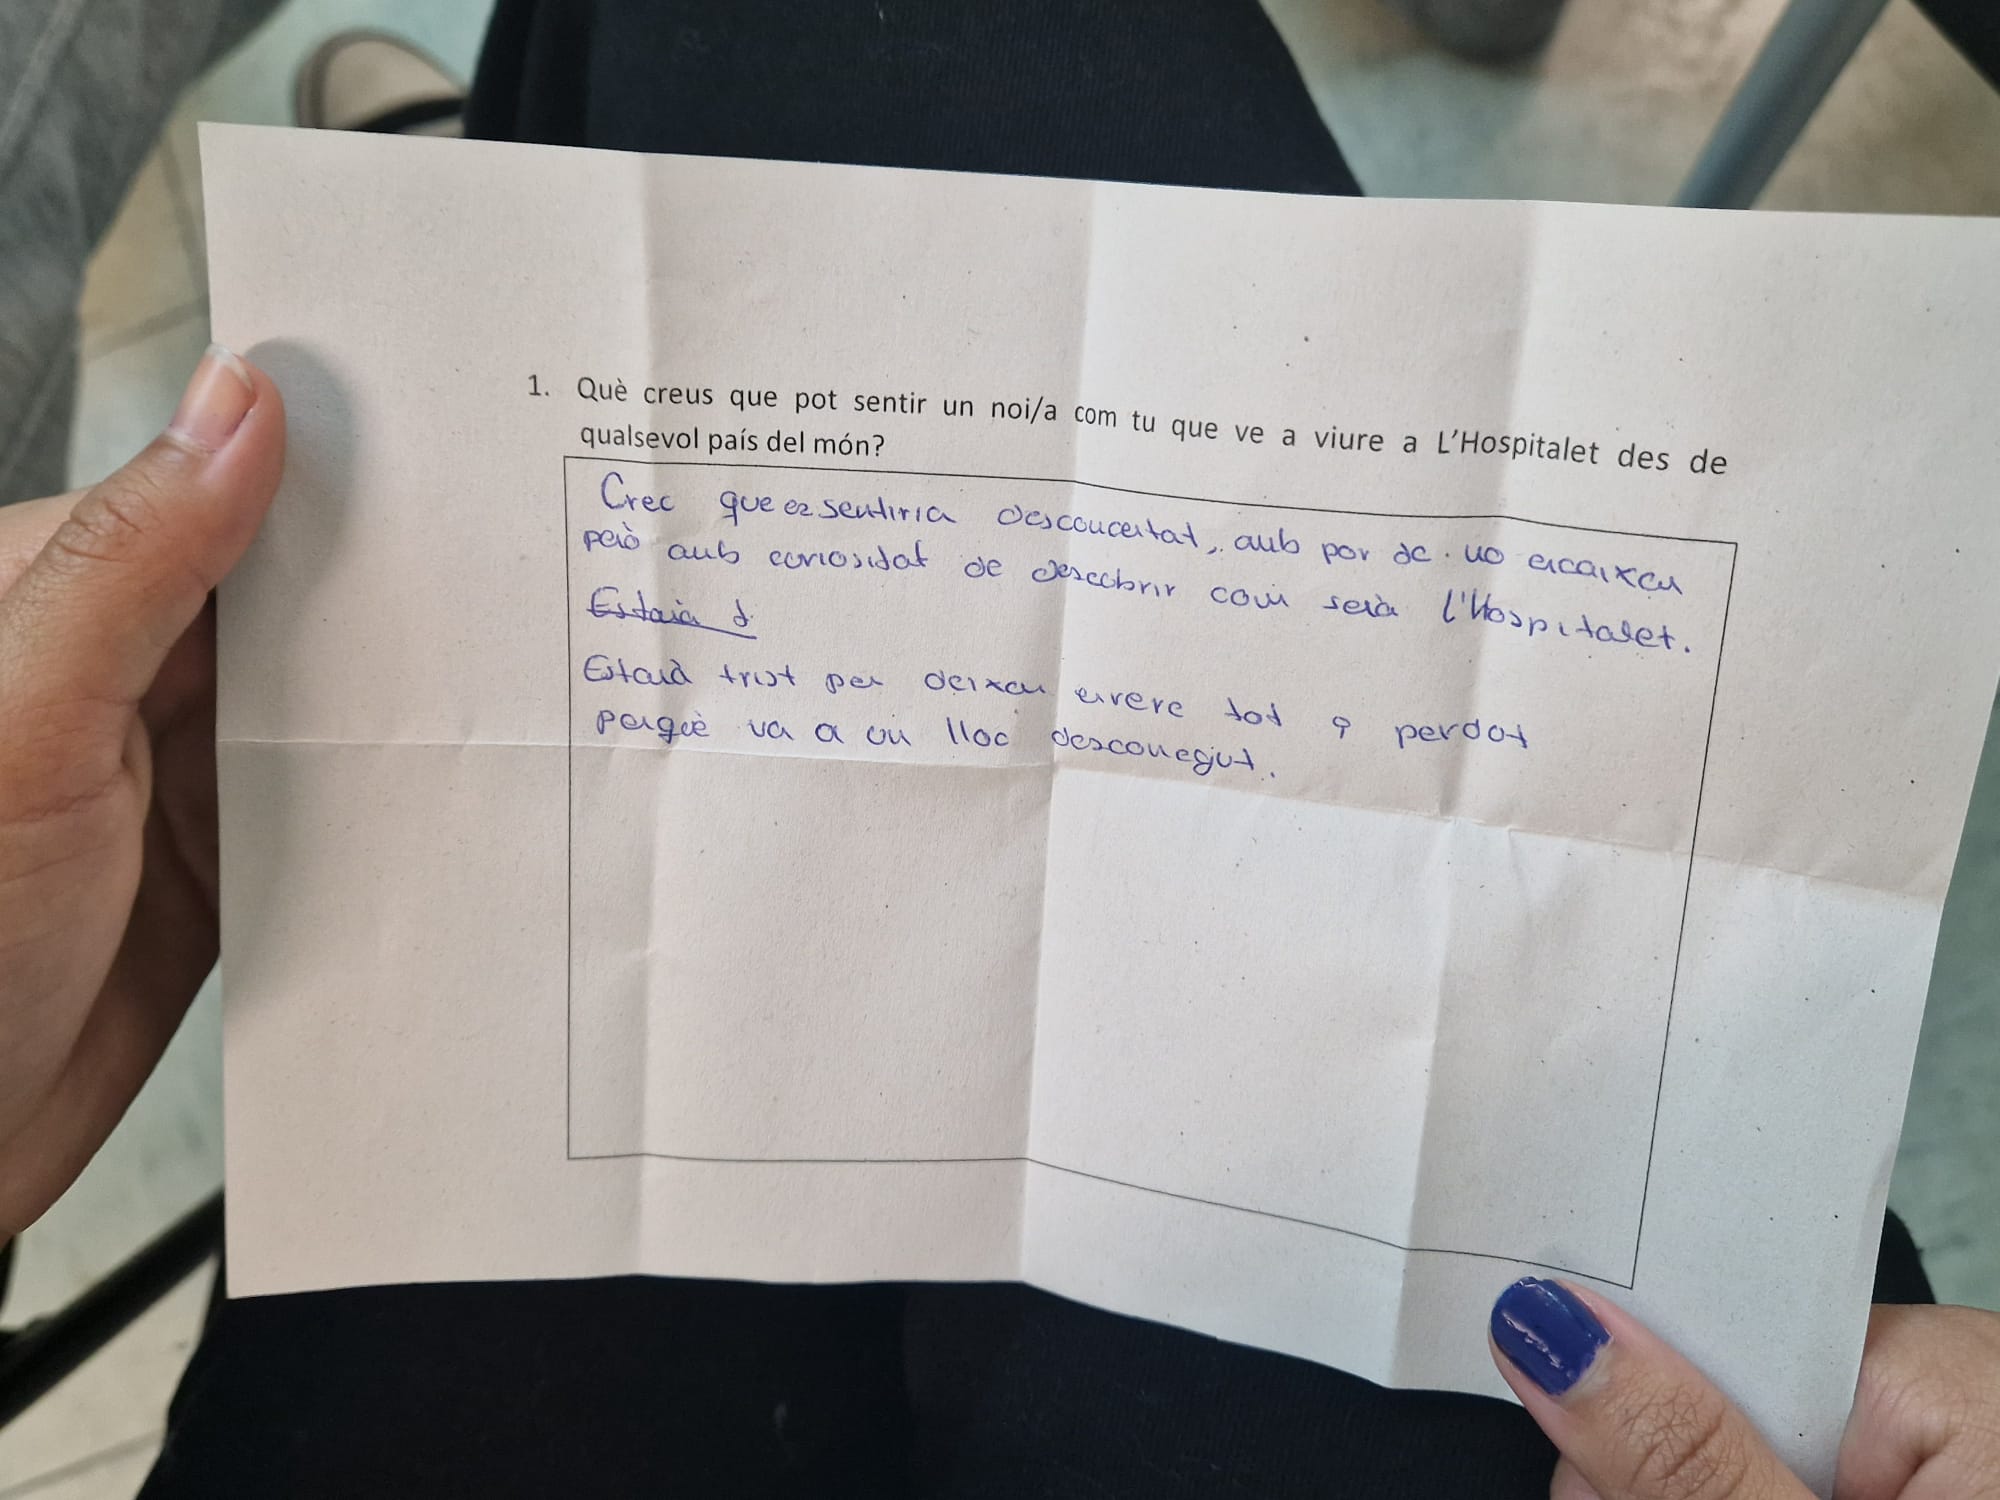 1. Què creus que pot sentir un noi/a com tu que ve a viure a L'Hospitalet des de
qualsevol país del món?
Crec que es sentiria desconcertat, amb por de no encaixar
però amb curiositat de descobrir com serà l'Hospitalet.
Estarà d
Estarà trist per deixar enrere tot i perdut
perquè va a un lloc desconegut.